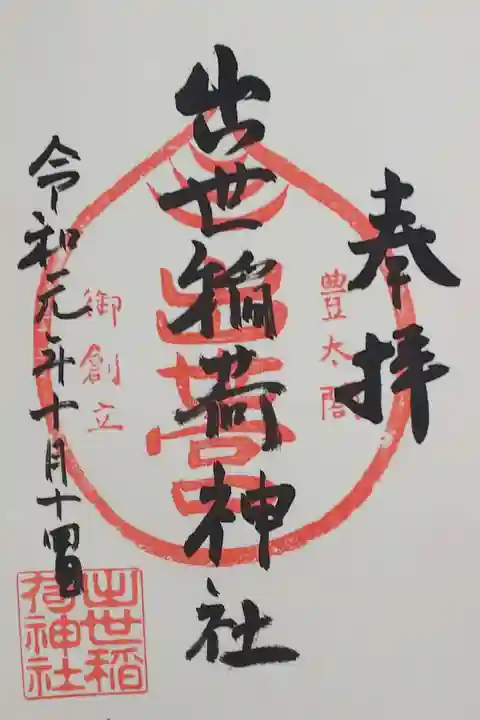 奉拝
豊太閤
出世稲荷神社
御創立
令和元年十月十四日
出世稲
荷神社